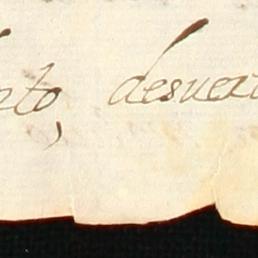 rto, desuer